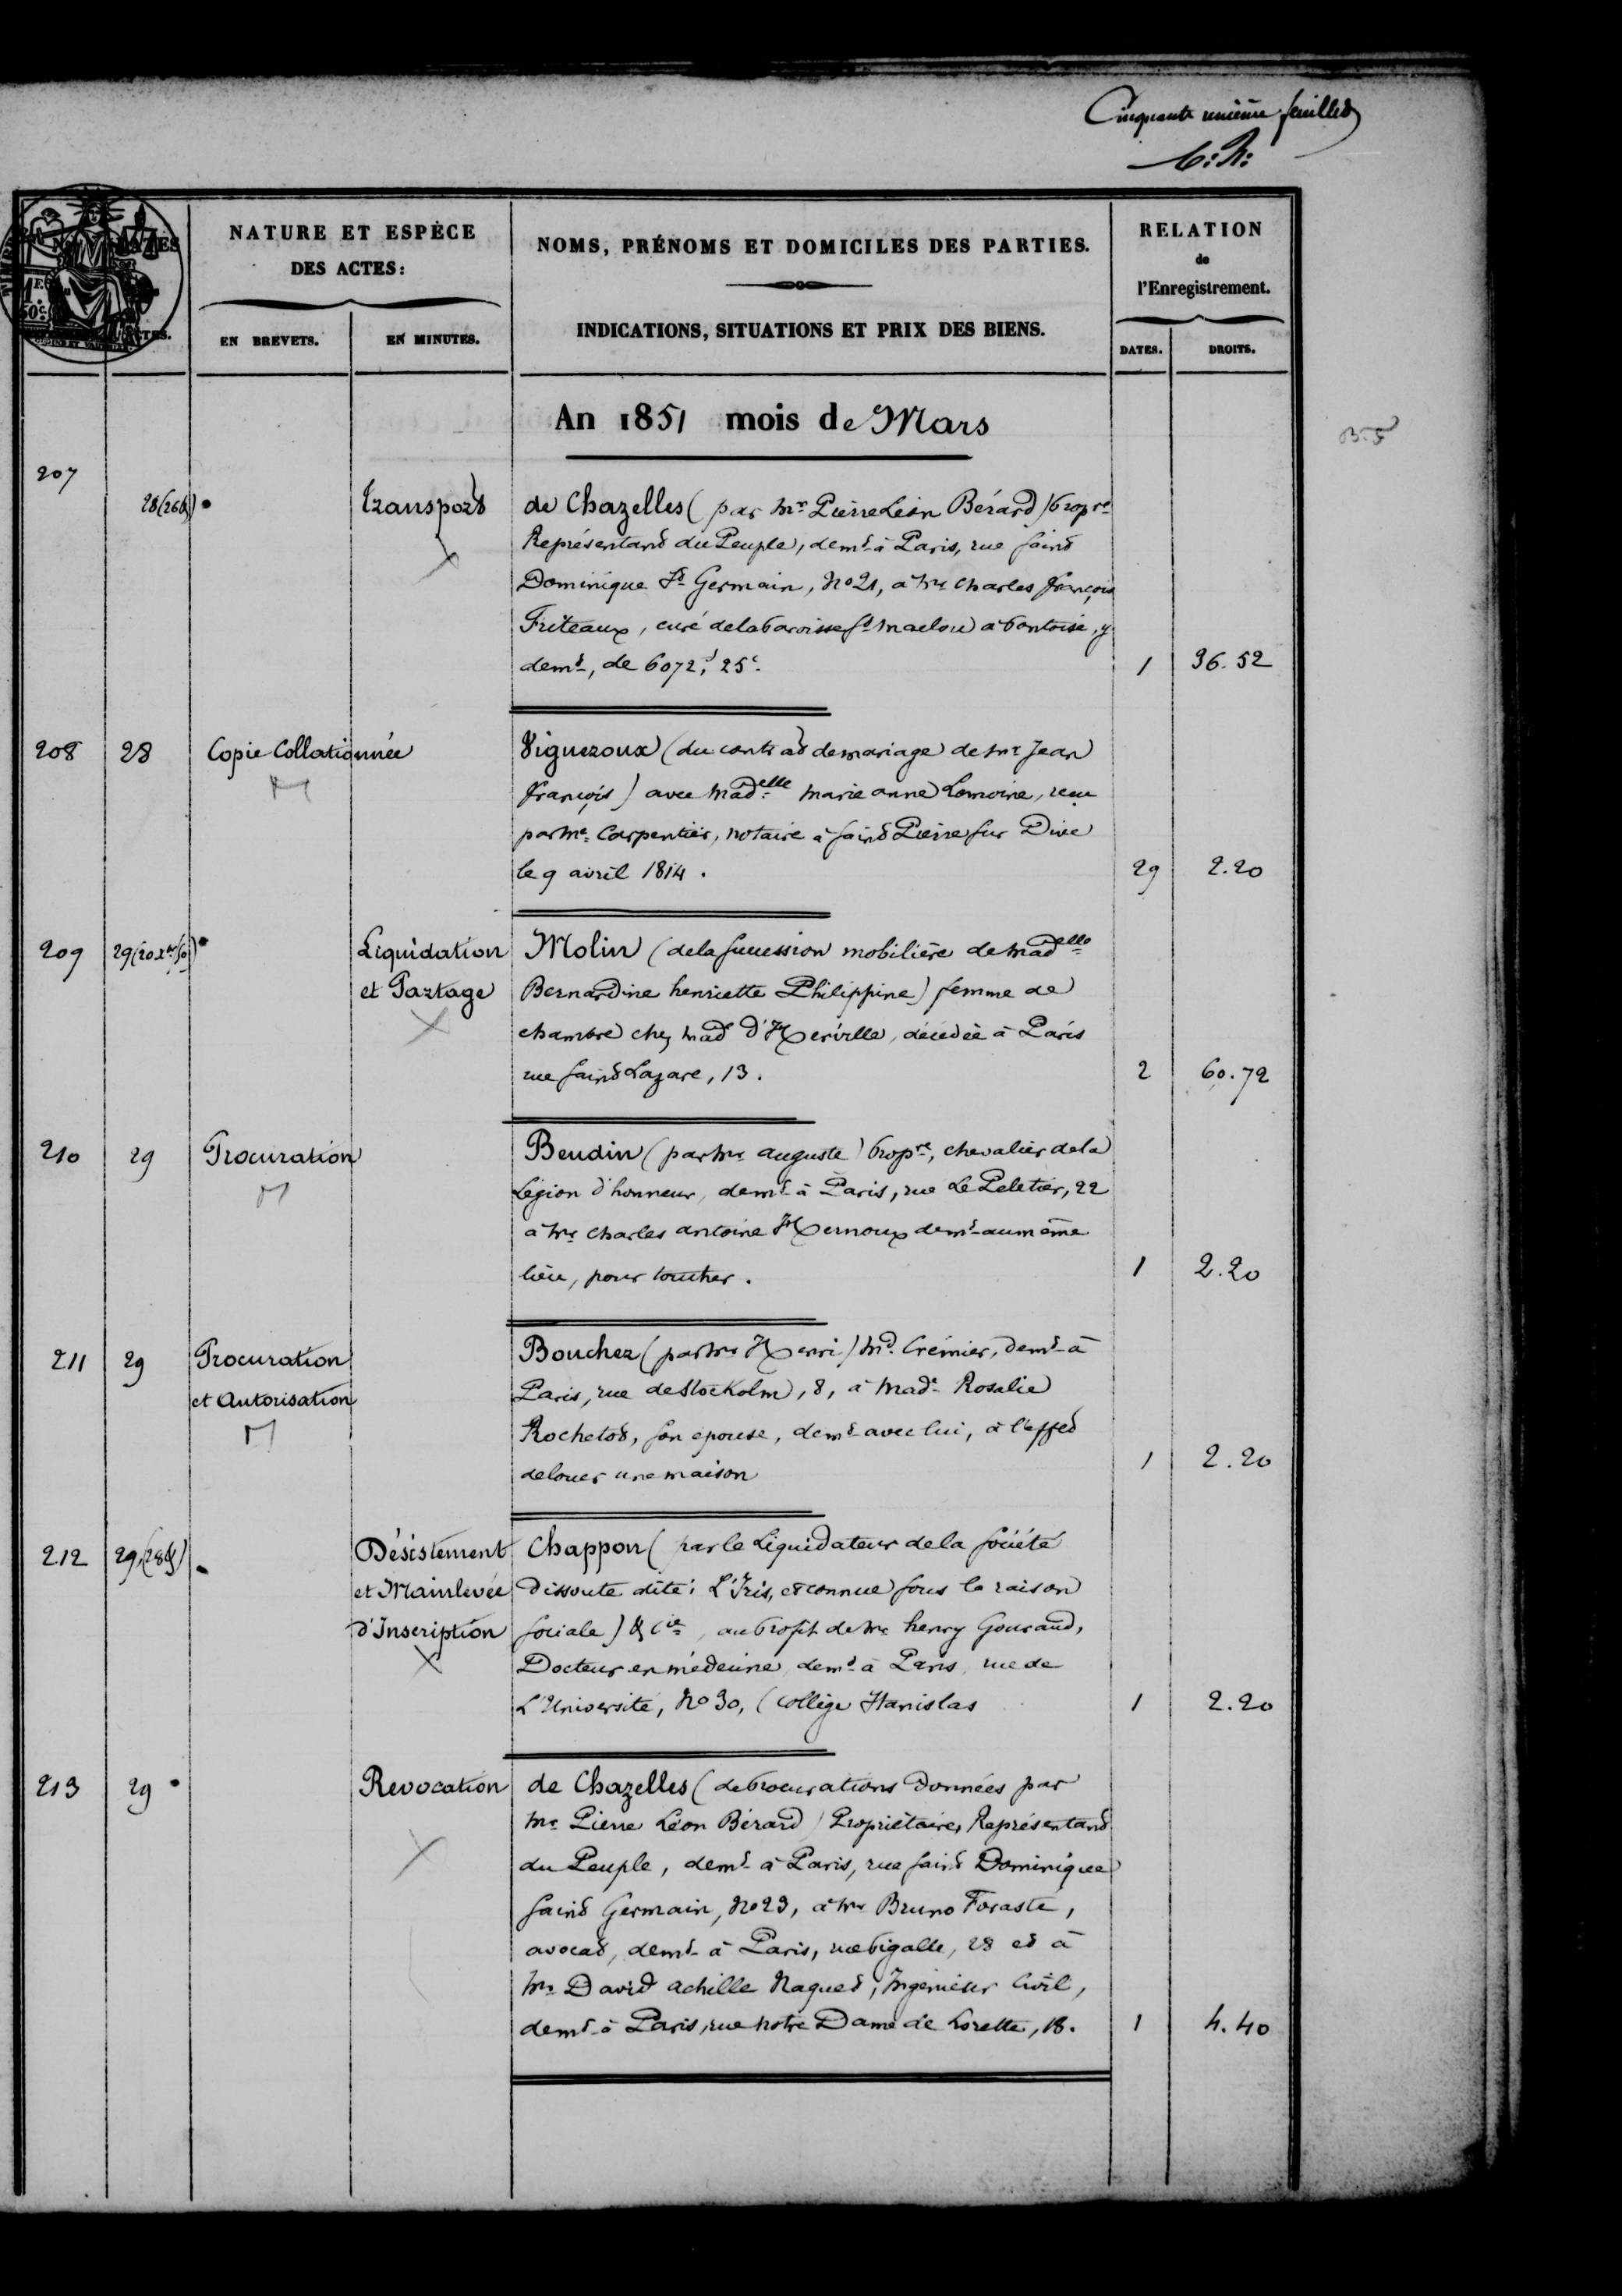 Cinquante unième feuillet
NATURE ET ESPÈCE
DES ACTES:
EN BREVETS.
EN MINUTES.
NOMS, PRÉNOMS ET DOMICILES DES PARTIES.
INDICATIONS, SITUATIONS ET PRIX DES BIENS.
RELATION
de
l'Enregistrement.
DATES.
DROITS.
An 1851 mois de Mars
207
28 (26 &) Transport de Chazelles (par Mr Pierre Léon Bérard) Propre
Représentant du Peuple, demt à Paris, rue Saint
Dominique St Germain, No 21, à Mr Charles françois
Friteaux, curé de la Paroisse St Maclou à Pontoise, y
demt, de 6072f 25c. 1 36.52
208 28 Copie Collationnée Viguezoux (du contrat de mariage de Mr Jean
françois) avec Madelle Marie anne Lemoine, reçu
par Me Carpentier, notaire à Saint Pierre sur Dive
le 9 avril 1814. 29 2.20
209 29 (20 Xbre 50) Liquidation Molin (de la succession mobilière de Madelle
et Partage Bernardine henriette Philippine) femme de
chambre chez Made d'Herville, décédée à Paris
rue Saint Lazare, 13. 2 60.72
210 29 Procuration Beudin (par Mr auguste) Propre, chevalier de la
Légion d'honneur, demt à Paris, rue Le Peletier, 22
à Mr Charles antoine Hernoux demt au même
lieu, pour toucher. 1 2.20
211 29 Procuration Bouchez (par Mr Henri) Md Crémier, demt à
et Autorisation Paris, rue de Stockolm, 8, à Made Rosalie
Rochetot, son épouse, demt avec lui, à l'effet
de louer une maison 1 2.20
212 29 (28 &) Désistement Chappon (par le Liquidateur de la Société
et Mainlevée dissoute dite: L'Iris, et connue sous la raison
d'Inscription sociale) & Cie, au Profit de Mr henry Gouraud,
Docteur en médecine, demt à Paris, rue de
L'Université, No 30, (Collège Stanislas 1 2.20
213 29 Revocation de Chazelles (de Procurations Données par
Mr Pierre Léon Bérard) Propriétaire, Représentant
du Peuple, demt à Paris, rue Saint Dominique
Saint Germain, No 23, à Mr Bruno Foraste,
avocat, demt à Paris, rue Pigalle, 28 et à
Mr David achille Naquet, Ingénieur Civil,
demt à Paris, rue Notre Dame de Lorette, 18. 1 4.40